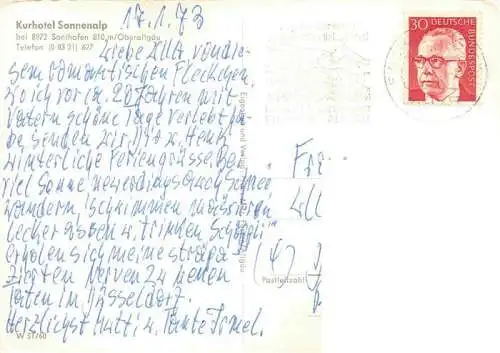 Kurhotel Sonnenalp
bei 8972 Sonthofen 810 m/Oberallgäu
Telefon (0 83 21) 627
17.1.73
Liebe Illa von die-
sem romantischen Fleckchen,
wo ich vor ca. 20 Jahren mit
Vatern schöne Tage verlebt ha-
be, senden wir Dir u. Henk
winterliche Feriengrüsse. Bei
viel Sonne neuerdings auch Schnee
wandern, schwimmen, massieren
lecker essen u. trinken
erholen sich meine strapa-
zierten Nerven zu neuen
Taten in Düsseldorf.
Herzlichst Mutti u. Tante Irmel.
W 51760
30
DEUTSCHE
BUNDESPOST
Postleitzahl